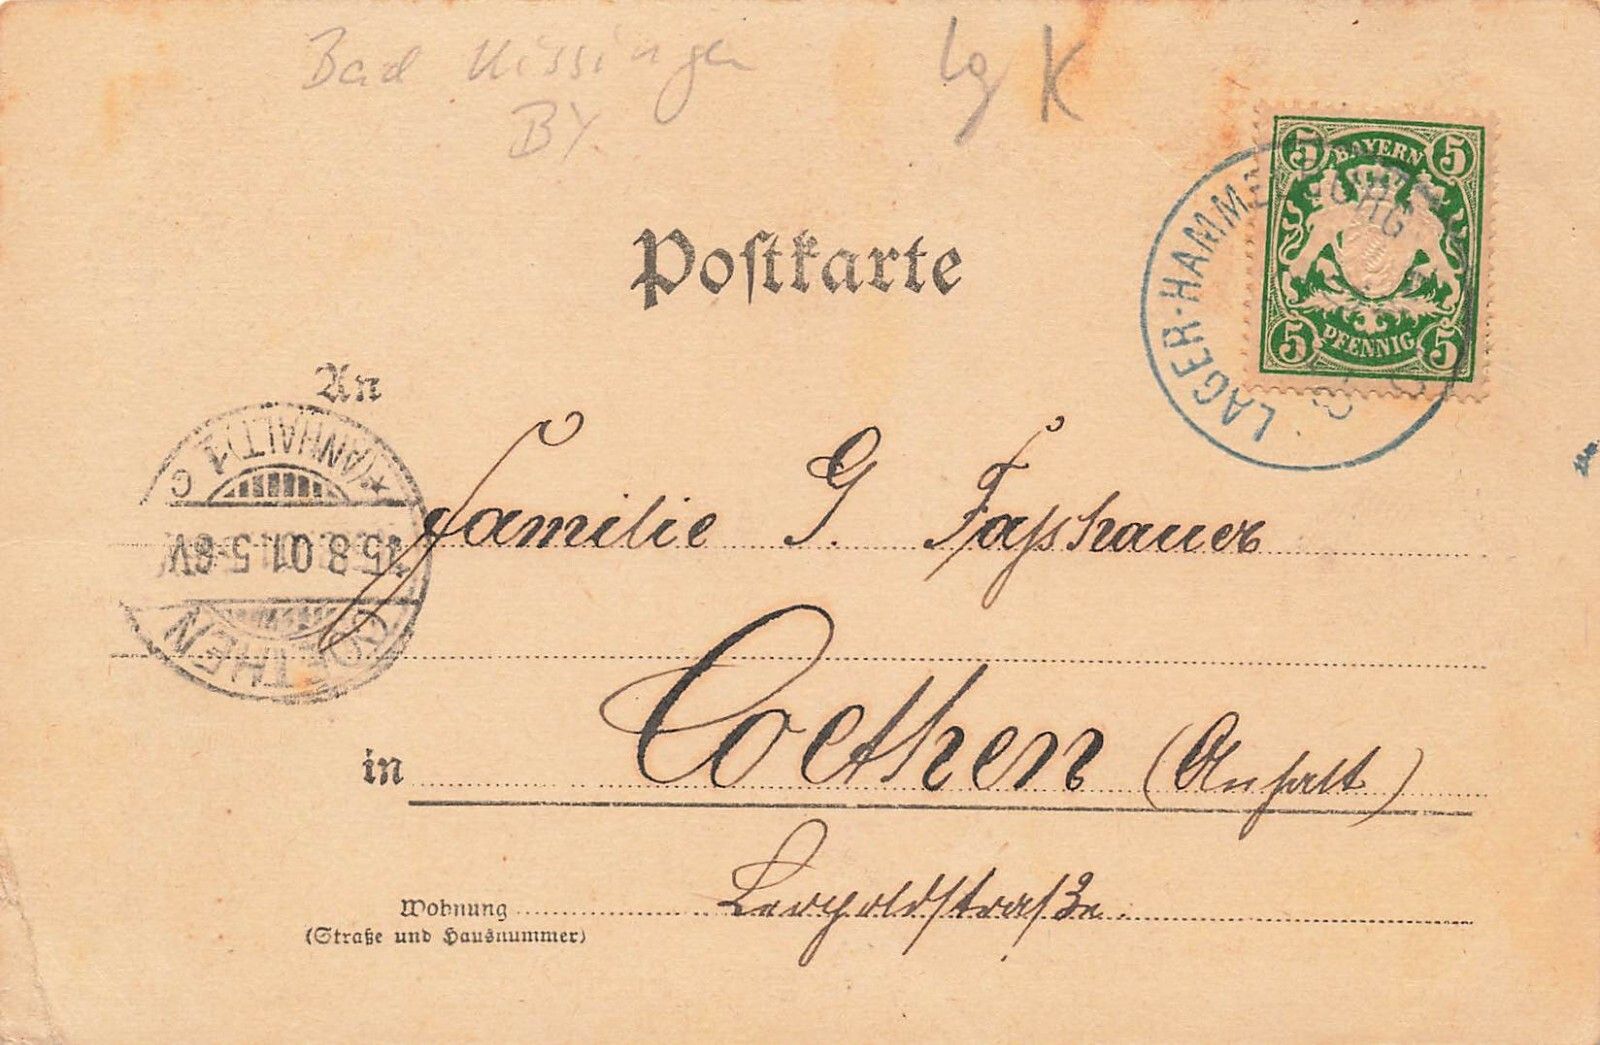 Bad Kissingen
BY
lg K
BAYERN
5 5
5 5
PFENNIG
LAGER-HAMMELBURG
Postkarte
An
(ANHALT) 1 C
15.8.01.5-6V
COETHEN
Familie G. Faßhauer
in Coethen (Anhalt)
Wohnung Leopoldstraße
(Straße und Hausnummer)